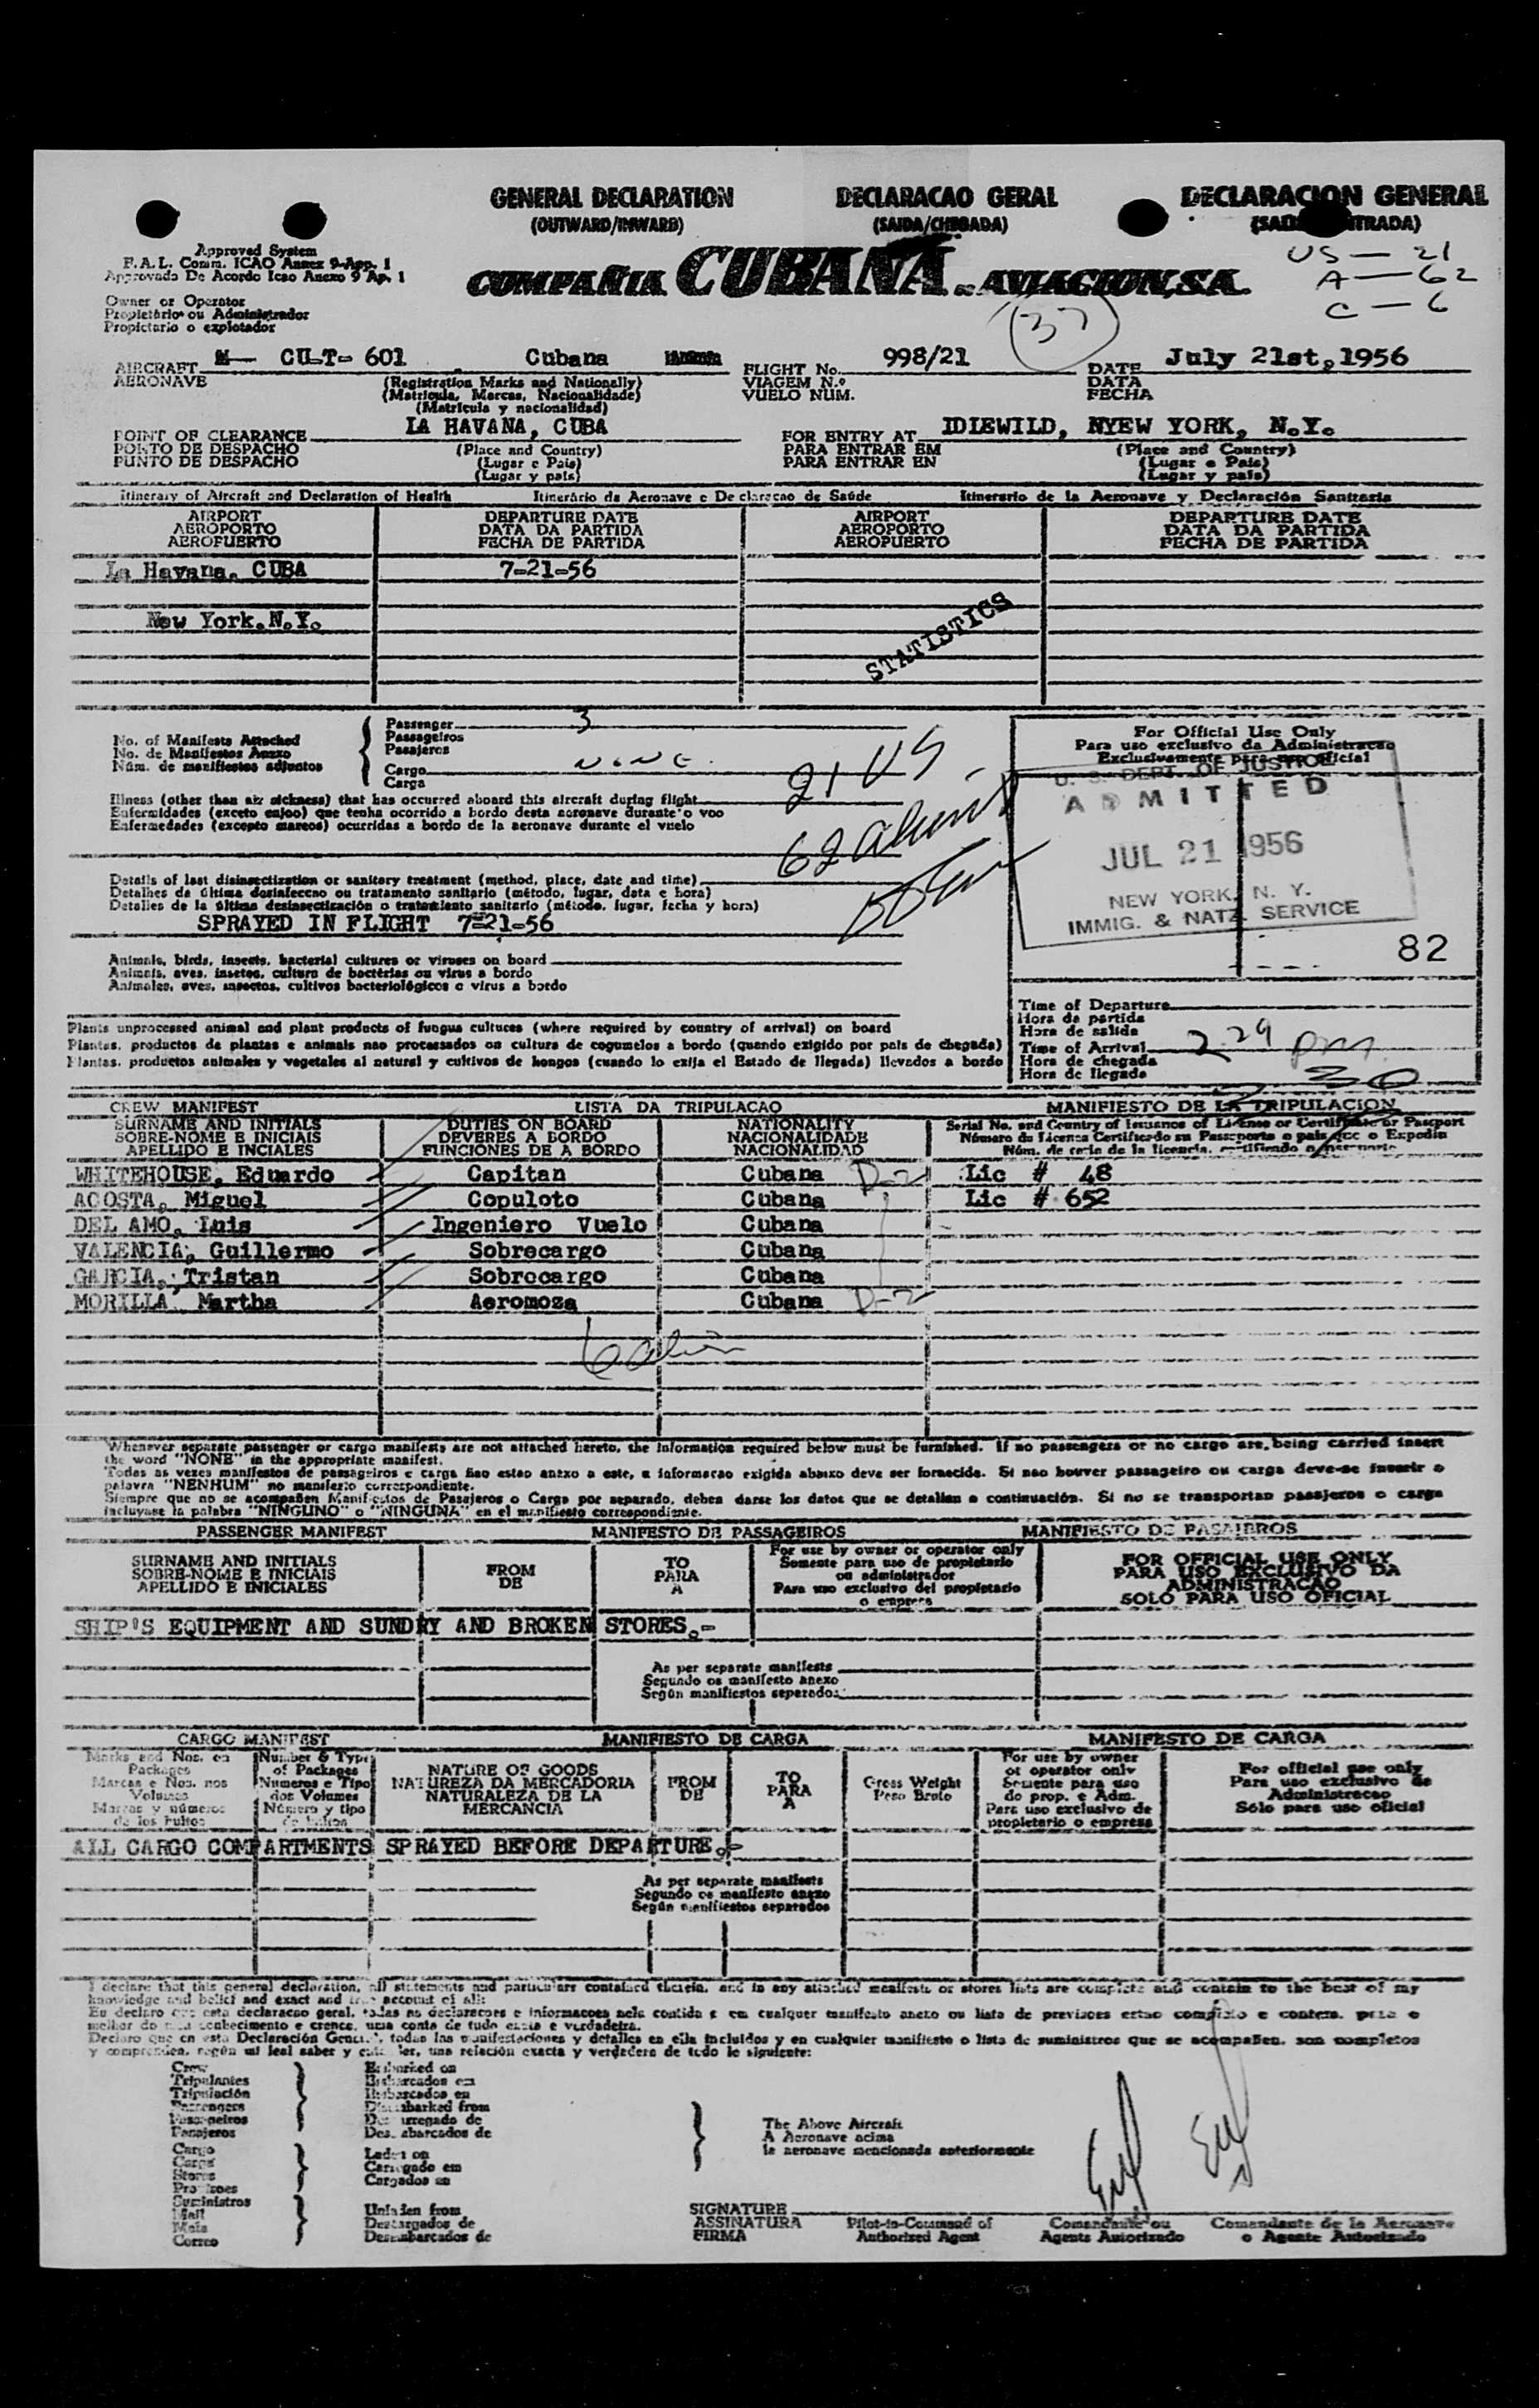 GENERAL DECLARATION
(OUTWARD/INWARD)
DECLARACAO GERAL
(SAIDA/CHEGADA)
DECLARACION GENERAL
Approved System
F.A.L. Comm. ICAO Annex 9-App. 1
Aprovado De Acordo Icao Anexo 9 Ap. 1
COMPAÑIA CUBANA DE AVIACION, S.A.
US — 21
A — 62
C — 6
(37)
Owner or Operator
Propietário ou Administrador
Propietario o explotador
AIRCRAFT CU-T- 601 Cubana
AERONAVE
(Registration Marks and Nationally)
(Matricula, Marcas, Nacionalidade)
(Matricula y nacionalidad)
FLIGHT No. 998/21
VIAGEM N.º
VUELO NUM.
DATE July 21st, 1956
DATA
FECHA
POINT OF CLEARANCE LA HAVANA, CUBA
PONTO DE DESPACHO
PUNTO DE DESPACHO
(Place and Country)
(Lugar e Pais)
(Lugar y pais)
FOR ENTRY AT IDLEWILD, NYEW YORK, N.Y.
PARA ENTRAR EM
PARA ENTRAR EN
(Place and Country)
(Lugar e Pais)
(Lugar y pais)
Itinerary of Aircraft and Declaration of Health Itinerário da Aeronave e Declaracao de Saúde Itinerario de la Aeronave y Declaración Sanitaria
AIRPORT
AEROPORTO
AEROPUERTO
DEPARTURE DATE
DATA DA PARTIDA
FECHA DE PARTIDA
AIRPORT
AEROPORTO
AEROPUERTO
DEPARTURE DATE
DATA DA PARTIDA
FECHA DE PARTIDA
La Havana, CUBA 7-21-56
New York.N.Y.
STATISTICS
No. of Manifests Attached
No. de Manifestos Anexo
Núm. de manifiestos adjuntos
Passenger 3
Passageiros
Pasajeros
Cargo NONE
Carga
21 US
Illness (other than air sickness) that has occurred aboard this aircraft during flight
Enfermidades (exceto enjoo) que tenha ocorrido a bordo desta aeronave durante o voo
Enfermedades (excepto mareos) ocurridas a bordo de la aeronave durante el vuelo
Details of last disinsectization or sanitary treatment (method, place, date and time)
Detalhes da última desinfeccao ou tratamento sanitario (método, lugar, data e hora)
Detalles de la última desinsectización o tratamiento sanitario (método, lugar, fecha y hora)
SPRAYED IN FLIGHT 7-21-56
Animals, birds, insects, bacterial cultures or viruses on board
Animais, aves, insetos, cultura de bactérias ou virus a bordo
Animales, aves, insectos, cultivos bacteriológicos o virus a bordo
Plants unprocessed animal and plant products of fungus cultures (where required by country of arrival) on board
Plantas, productos de plantas e animais nao processados ou cultura de cogumelos a bordo (quando exigido por pais de chegada)
Plantas, productos animales y vegetales al natural y cultivos de hongos (cuando lo exija el Estado de llegada) llevados a bordo
For Official Use Only
Para uso exclusivo da Administracao
Exclusivamente para uso oficial
U. S. DEPT. OF JUSTICE
ADMITTED
JUL 21 1956
NEW YORK, N. Y.
IMMIG. & NATZ. SERVICE
82
Time of Departure
Hora de partida
Hora de salida
Time of Arrival 2:29 pm
Hora de chegada
Hora de llegada
30
CREW MANIFEST LISTA DA TRIPULACAO MANIFIESTO DE LA TRIPULACION
SURNAME AND INITIALS
SOBRE-NOME E INICIAIS
APELLIDO E INCIALES
DUTIES ON BOARD
DEVERES A BORDO
FUNCIONES DE A BORDO
NATIONALITY
NACIONALIDADE
NACIONALIDAD
Serial No. and Country of Issuance of License or Certificate or Passport
WHITEHOUSE, Eduardo Capitan Cubana D-2 Lic # 48
ACOSTA, Miguel Copuloto Cubana Lic # 652
DEL AMO, Luis Ingeniero Vuelo Cubana
VALENCIA, Guillermo Sobrecargo Cubana
GARCIA, Tristan Sobrecargo Cubana
MORILLA, Martha Aeromoza Cubana D-2
Whenever separate passenger or cargo manifests are not attached hereto, the information required below must be furnished. If no passengers or no cargo are being carried insert
the word "NONE" in the appropriate manifest.
Todas as vezes manifestos de passageiros e carga nao estao anexo a este, a informacao exigida abaixo deve ser fornecida. Si nao houver passageiro ou carga deve-se inserir a
palavra "NENHUM" no manifesto correspondiente.
Siempre que no se acompañen Manifiestos de Pasajeros o Carga por separado, deben darse los datos que se detallan a continuación. Si no se transportan pasajeros o carga
incluyase la palabra "NINGUNO" o "NINGUNA" en el manifiesto correspondiente.
PASSENGER MANIFEST MANIFESTO DE PASSAGEIROS MANIFIESTO DE PASAJEROS
SURNAME AND INITIALS
SOBRE-NOME E INICIAIS
APELLIDO E INICIALES
FROM
DE
TO
PARA
A
For use by owner or operator only
Somente para uso de propietario
ou administrador
Para uso exclusivo del propietario
o empresa
FOR OFFICIAL USE ONLY
PARA USO EXCLUSIVO DA
ADMINISTRACAO
SOLO PARA USO OFICIAL
SHIP'S EQUIPMENT AND SUNDRY AND BROKEN STORES.-
As per separate manifests
Segundo os manifesto anexo
Según manifiestos separados
CARGO MANIFEST MANIFIESTO DE CARGA MANIFESTO DE CARGA
Marks and Nos. on
Packages
Marcas e Nos. nos
Volumes
Marcas y números
de los bultos
Number & Type
of Packages
Numeros e Tipo
dos Volumes
Número y tipo
de bultos
NATURE OF GOODS
NATUREZA DA MERCADORIA
NATURALEZA DE LA
MERCANCIA
FROM
DE
TO
PARA
A
Gross Weight
Peso Bruto
For use by owner
or operator only
Somente para uso
do prop. e Adm.
Para uso exclusivo de
propietario o empresa
For official use only
Para uso exclusivo de
Administracao
Sólo para uso oficial
ALL CARGO COMPARTMENTS SPRAYED BEFORE DEPARTURE.-
As per separate manifests
Segundo os manifesto anexo
Según manifiestos separados
I declare that this general declaration, all statements and particulars contained therein, and in any attached manifests or stores lists are complete and contain to the best of my
knowledge and belief and exact and true account of all:
Eu declaro que esta declaracao geral, todas as declaracoes e informacoes nele contida e em cualquer manifesto anexo ou lista de previsoes estao completo e contem, para o
melhor do meu conhecimento e crence, uma conta de tudo exata e verdadeira.
Declaro que en esta Declaración General, todas las manifestaciones y detalles en ella incluidos y en cualquier manifiesto o lista de suministros que se acompañen, son completos
y comprenden, según mi leal saber y entender, una relación exacta y verdadera de todo lo siguiente:
Crew
Tripulantes
Tripulación
Passengers
Passageiros
Pasajeros
Embarked on
Embarcados em
Embarcados en
Disembarked from
Desembarcados de
Cargo
Carga
Stores
Suministros
Mail
Mala
Correo
Laden on
Carregado em
Cargados en
Unladen from
Descargados de
Desembarcados de
The Above Aircraft
A Aeronave acima
la aeronave mencionada anteriormente
SIGNATURE
ASSINATURA
FIRMA
Pilot-in-Command of
Authorized Agent
Comandante ou
Agente Autorizado
Comandante de la Aeronave
o Agente Autorizado